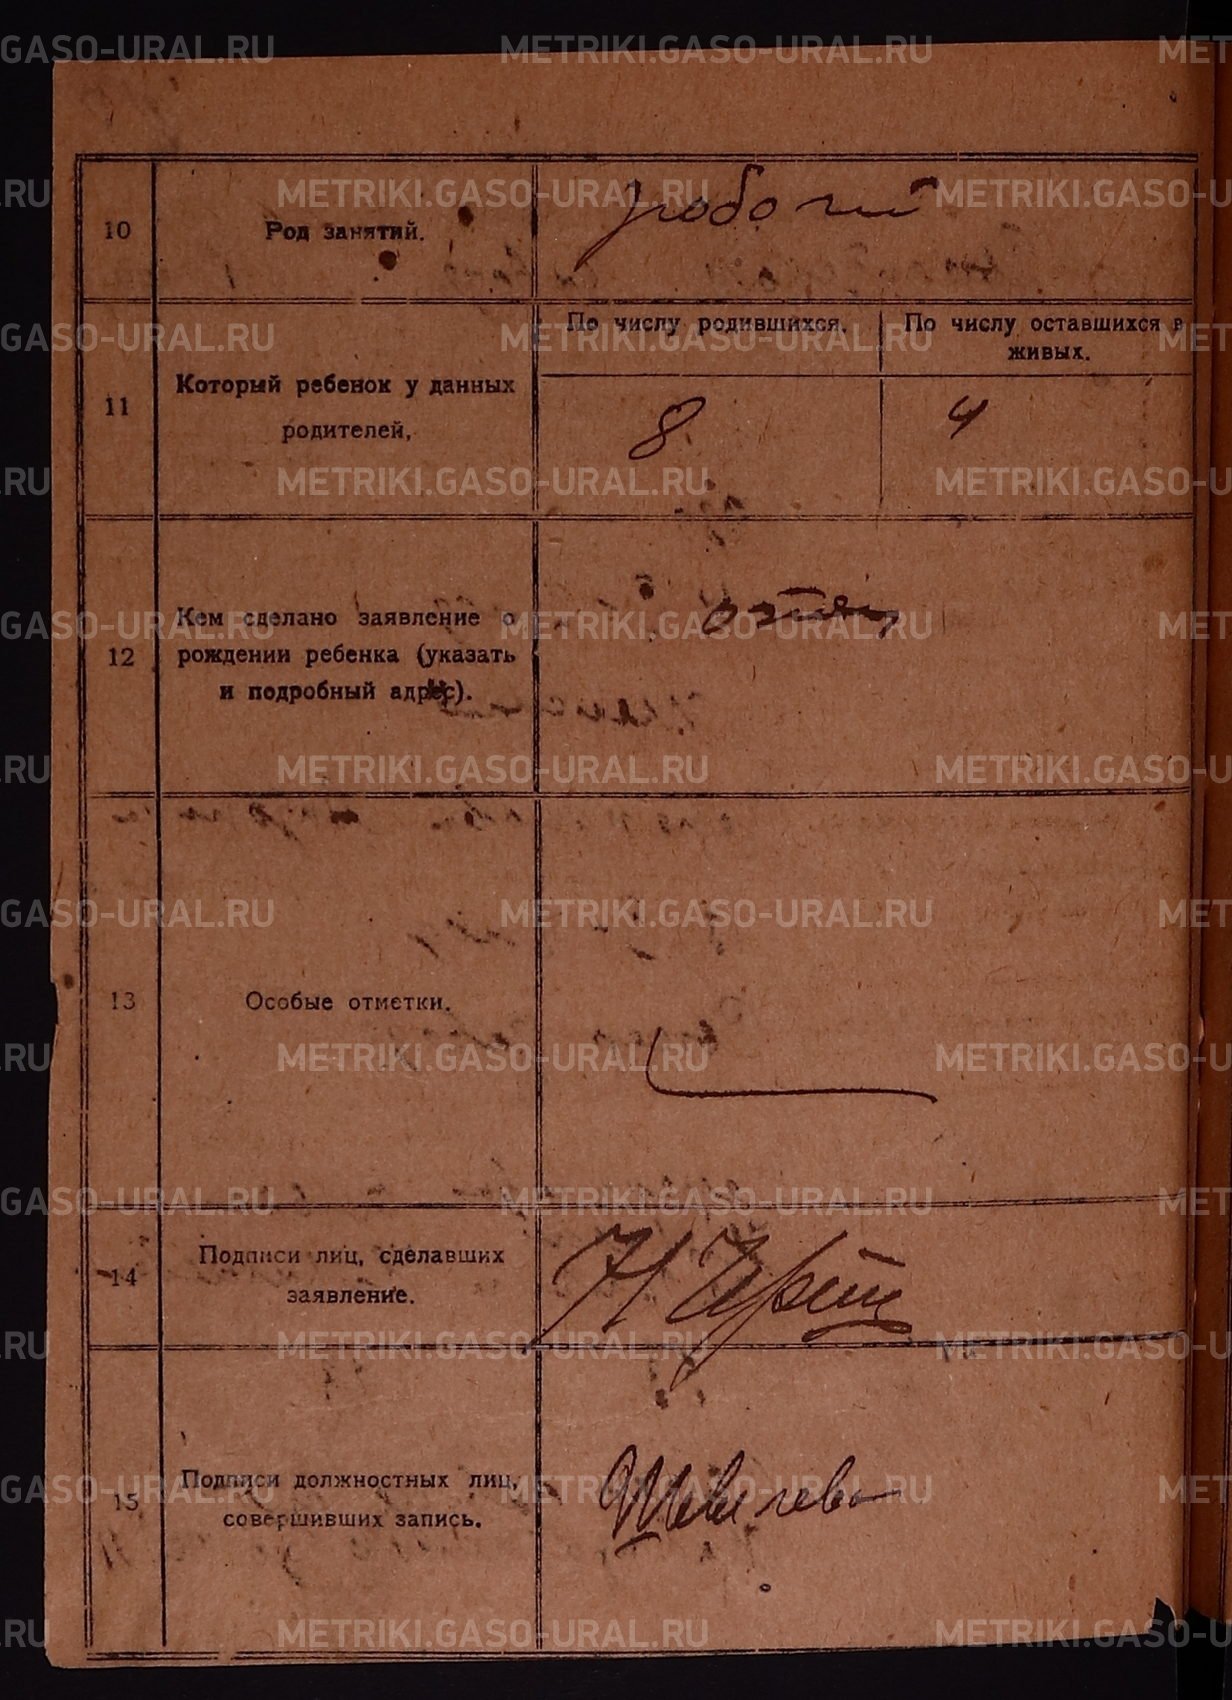 10
Род занятий.
рабочий
11
Который ребенок у данных
родителей.
По числу родившихся.
По числу оставшихся в
живых.
8
4
12
Кем сделано заявление о
рождении ребенка (указать
и подробный адрес).
отец
13
Особые отметки.
14
Подписи лиц, сделавших
заявление.
15
Подписи должностных лиц,
совершивших запись.
METRIKI.GASO-URAL.RU